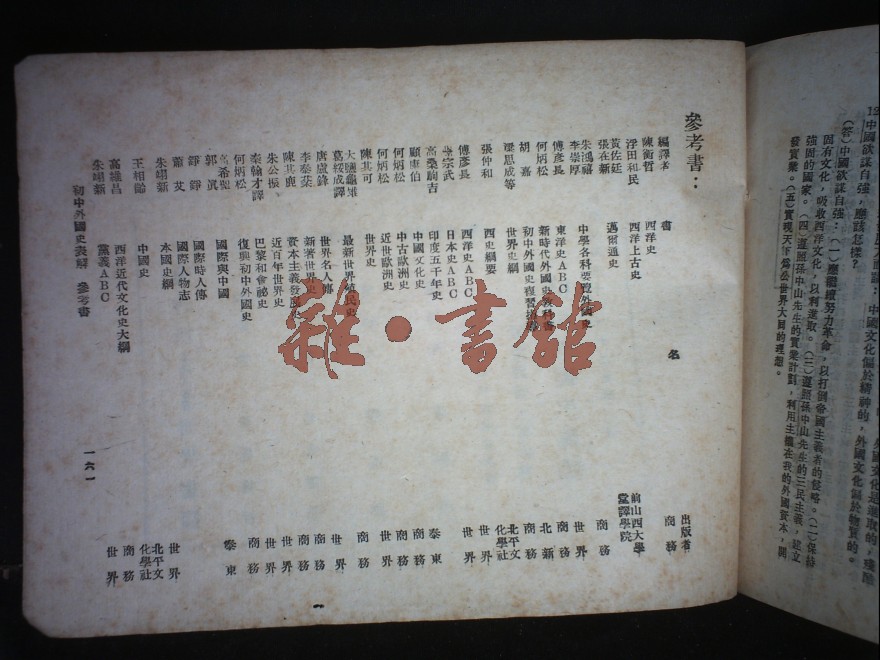 12中國欲謀自強，應該怎樣？
(答)中國欲謀自強：(一)應繼續努力革命，以打倒帝國主義者的侵略。(二)保持
固有文化，吸收西洋文化，以利進取。(三)遵照孫中山先生的三民主義，建立
強固的國家。(四)遵照孫中山先生的實業計劃，利用主權在我的外國資本，開
發實業。(五)實現天下爲公世界大同的理想。
參考書：
編譯者 書 名 出版者
陳衡哲 西洋史 商務
浮田和民 西洋上古史 前山西大學堂譯學院
黃佐廷
張在新 邁爾通史 商務
朱鴻禧
李崇厚 中學各科要覽外國史 世界
傅彥長 東洋史ABC 世界
何炳松 新時代外國史教科書 商務
胡嘉 初中外國史複習指導 北新
梁思成等 世界史綱 商務
張仲和 西史綱要 北平文化學社
傅彥長 西洋史ABC 世界
李宗武 日本史ABC 世界
高桑駒吉 印度五千年史 商務
顧康伯 中國文化史 泰東
何炳松 中古歐洲史 商務
何炳松 近世歐洲史 商務
陳其可 世界史 世界
大鹽龜雄
葛綏成譯 最新世界殖民史 商務
唐盧鋒 世界名人傳 世界
李泰棻 新著世界史 商務
陳其鹿 資本主義發展史 商務
朱公振 近百年世界史 世界
秦翰才譯 巴黎和會祕史 世界
何炳松 復興初中外國史 商務
國際與中國 泰東
郭眞
錚錚 國際時人傳
蕭艾 國際人物志
朱翊新 本國史綱 世界
王桐齡 中國史 北平文化學社
高維昌 西洋近代文化史大綱 商務
朱翊新 黨義ABC 世界
初中外國史表解 參考書
一六一
雜·書館